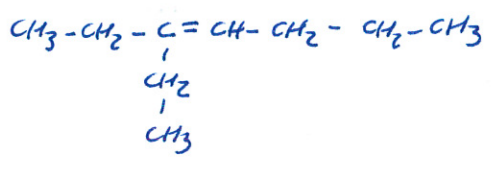 CH3-CH2-C=CH-CH2-CH2-CH3
CH2
CH3